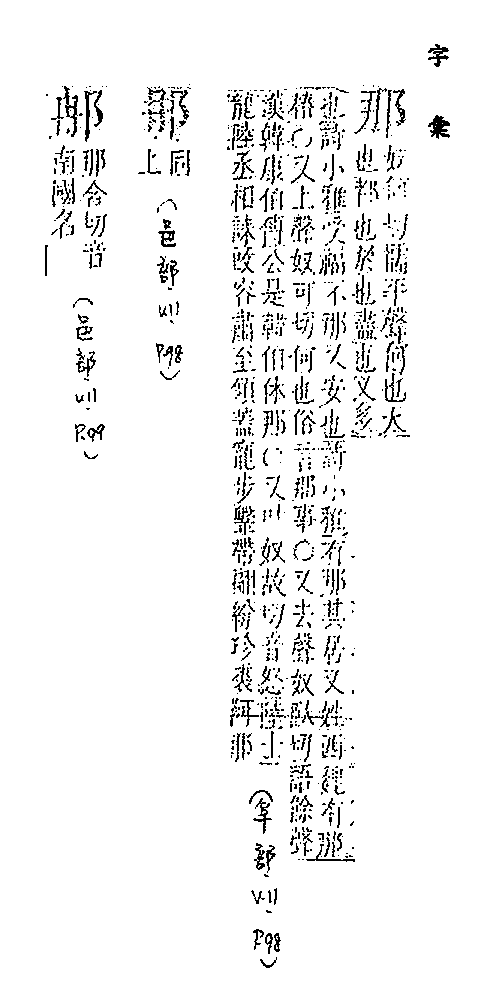 字彙
那
奴何切懦平聲何也大
也都也於也盡也又多
也詩小雅受福不那又安也詩小雅有那其居又姓西魏有那
椿○又上聲奴可切何也俗言那事○又去聲奴臥切語餘聲
漢韓康伯傳公是韓伯休那○又叶奴故切音怒陸士
龍陸丞相誄改容肅至傾蓋寵步鞶帶翩紛珍裘阿那
(阜部 VII P98)
同
上
(邑部 VII P98)
那含切音
南國名
(邑部 VII P.99)